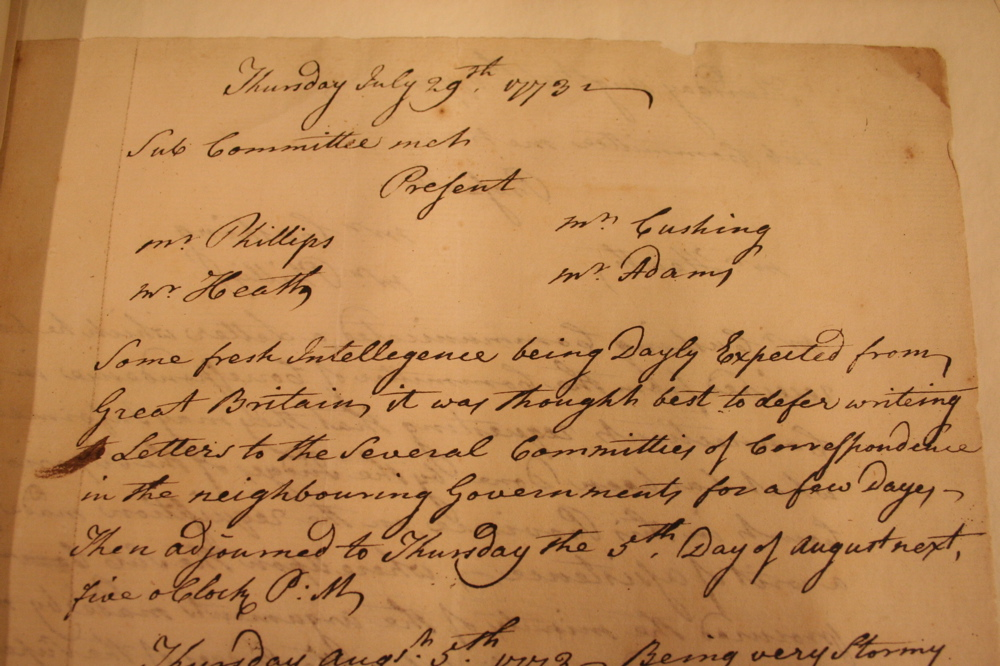 Thursday July 29th. 1773
Sub Committee met
Present
mr Phillips mr Cushing
mr Heath mr Adams
Some fresh Intellegence being Dayly Expected from
Great Britain, it was thought best to defer writing
Letters to the Several Committies of Correspondence
in the neighbouring Governments for a few Days,
Then adjourned to Thursday the 5th. Day of august next,
five oClock P:M,
Thursday augst. 5th. 1773 Being very Stormy